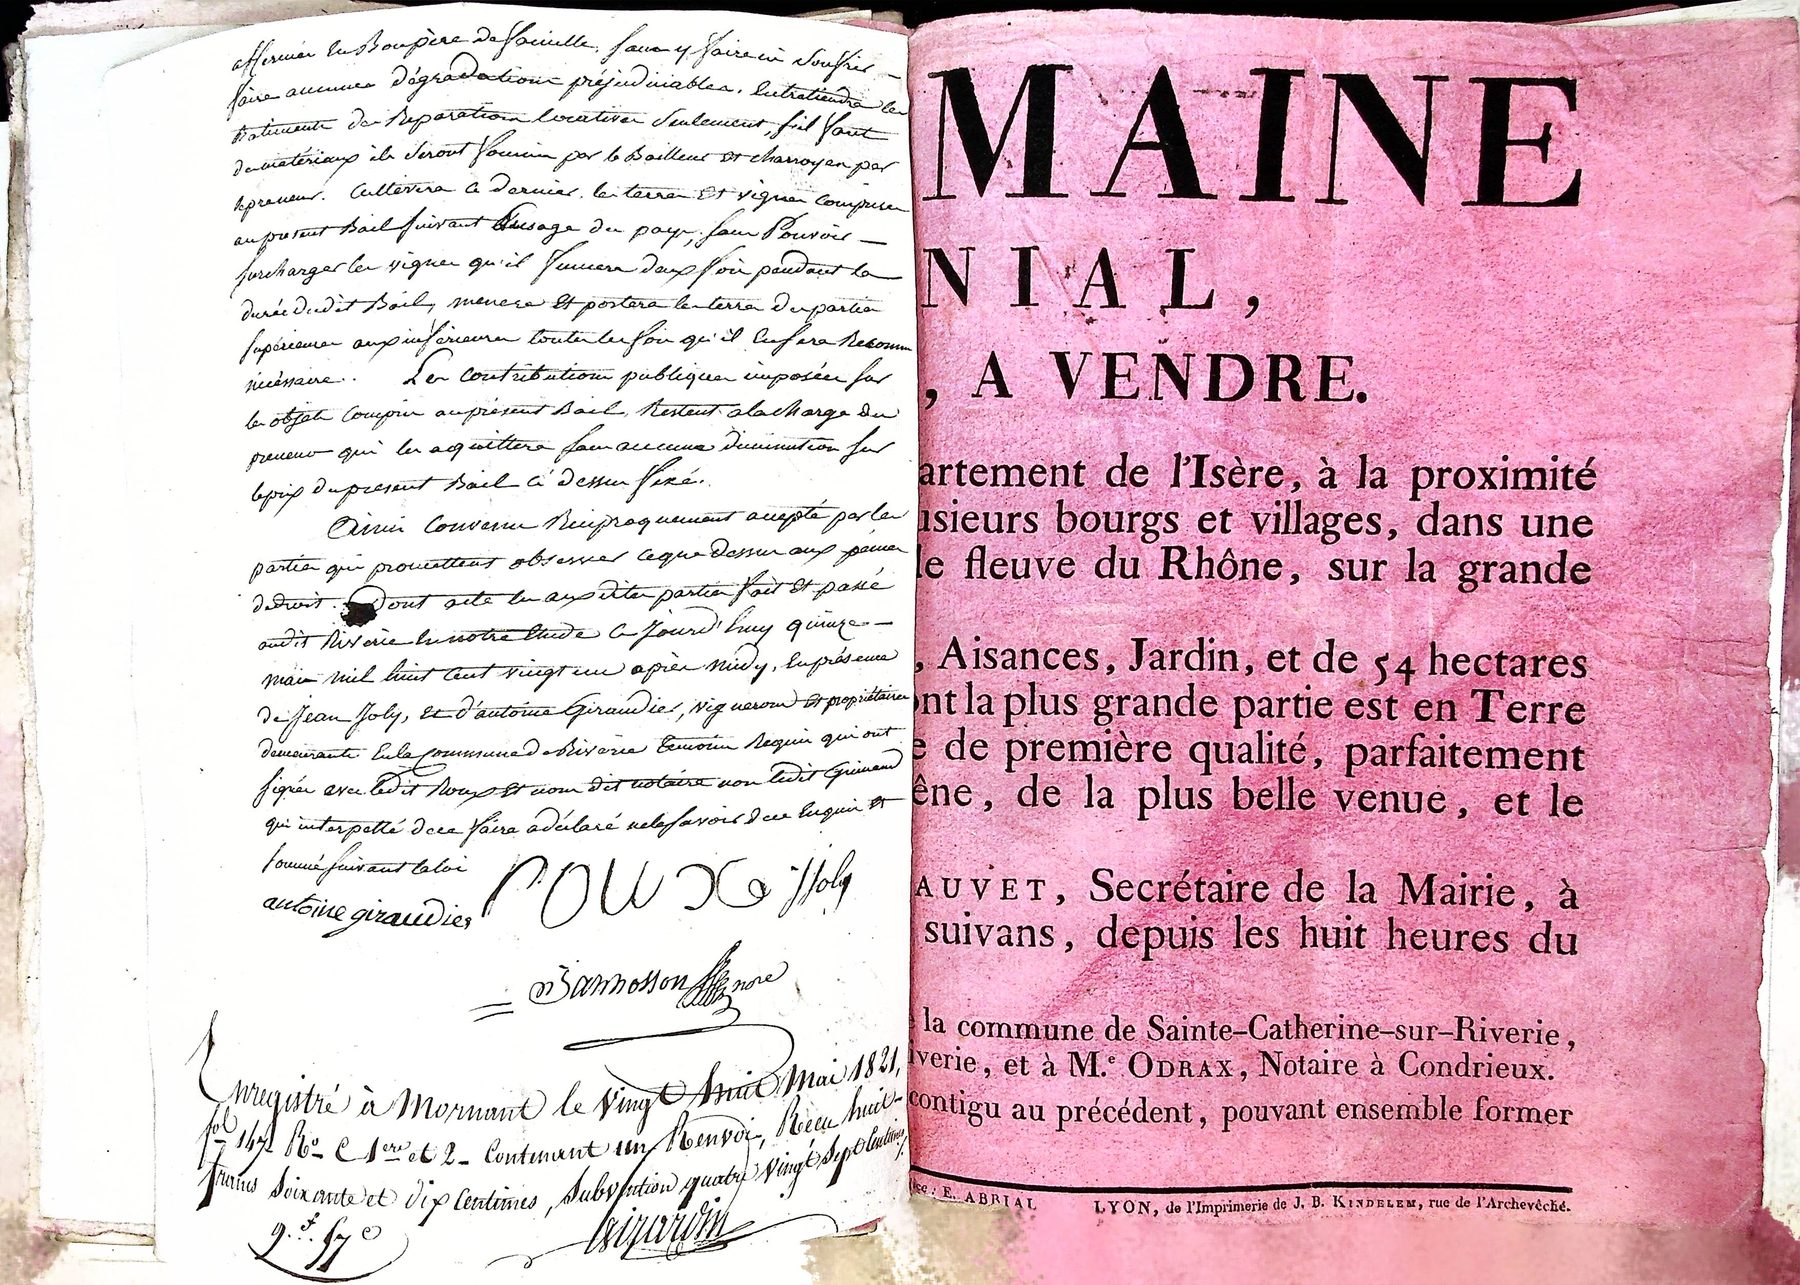 affermées en Bon père de famille, sans y faire ni souffrir
faire aucunes dégradations préjudiciables. Entretiendra les
Batiments des Réparations locatives seulement, s'il faut
des matériaux ils seront fournis par le Bailleur et charroyés par
le preneur. Cultivera ce dernier les terres et vignes comprises
au présent Bail suivant l'usage du pays, sans Pouvoir
surcharger les vignes qu'il fumera deux fois pendant la
durée dudit Bail, menera et portera les terres des parties
supérieures aux inférieures toutes les fois qu'il en sera Reconnu
nécéssaire. Les contributions publiques imposées sur
les objets compris au présent Bail, Restent a la charge du
preneur qui les acquittera sans aucune diminution sur
le prix du present Bail ci dessus fixé.
Ainsi convenu Réciproquement accepté par les
parties qui promettent observer ce que dessus aux peines
de droit. Dont acte aux dites parties fait et passé
audit Riverie en notre Etude ce Jourd'huy quinze
mai mil huit cent vingt un après midy, en présence
de Jean Joly, et d'antoine Giraudier, vignerons et propriétaires
demeurants en la Commune de Riverie temoins Requis qui ont
signés avec ledit Roux et nous dit notaire non ledit Grimaud
qui interpellé de ce faire a déclaré ne le savoir de ce Enquis et
sommé suivant la loi
antoine giraudier Roux J Joly
Bannosson nore
Enregistré à Mornant le vingt huit Mai 1821,
fol 147 Ro C 1ere et 2 Contenant un Renvoi, Recu huit
francs soixante et dix centimes, subvention quatre vingt sept centimes
9.f 57c Girardin
MAINE
NIAL,
, A VENDRE.
artement de l'Isère, à la proximité
usieurs bourgs et villages, dans une
le fleuve du Rhône, sur la grande
, Aisances, Jardin, et de 54 hectares
ont la plus grande partie est en Terre
e de première qualité, parfaitement
êne, de la plus belle venue, et le
AUVET, Secrétaire de la Mairie, à
suivans, depuis les huit heures du
e la commune de Sainte-Catherine-sur-Riverie,
iverie, et à M.e ODRAX, Notaire à Condrieux.
contigu au précédent, pouvant ensemble former
E. ABRIAL LYON, de l'Imprimerie de J. B. KINDELEM, rue de l'Archevêché.